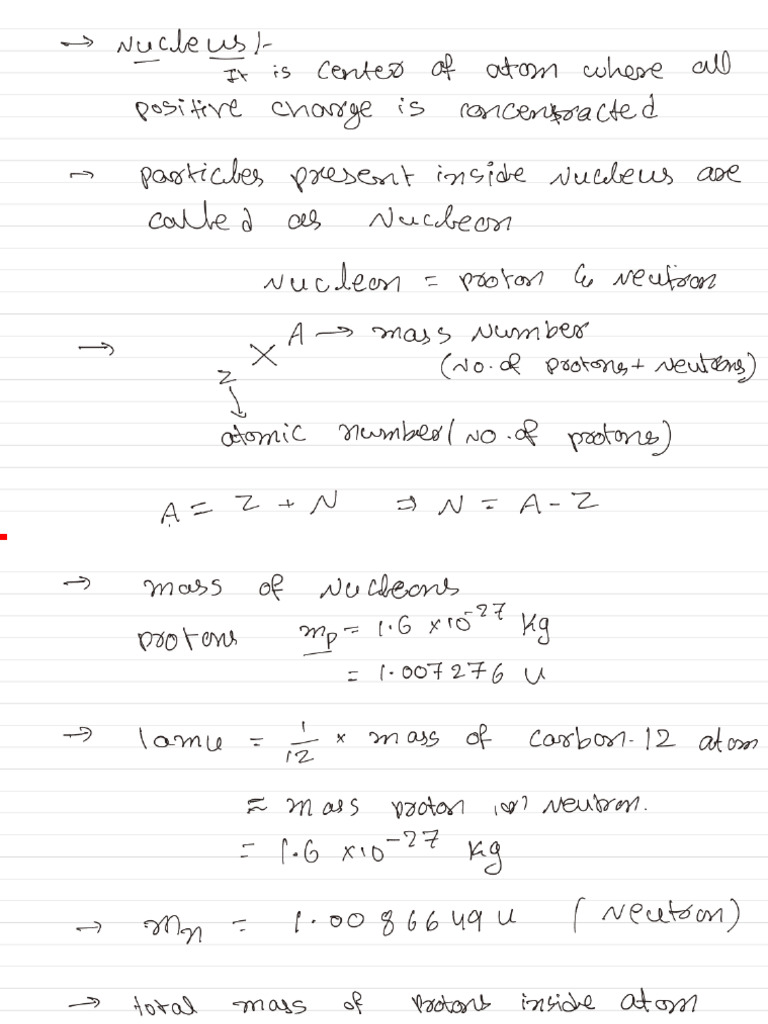 → Nucleus :-
It is center of atom where all
positive charge is concentracted
→ particles present inside Nucleus are
called as Nucleon
Nucleon = proton & Neutron
→ Z X A → mass Number
(No. of protons + Neutrons)
↓
atomic number (No. of protons)
A = Z + N ⇒ N = A - Z
→ mass of Nucleons
protons mp = 1.6 × 10^-27 Kg
= 1.007276 u
→ 1 amu = 1/12 × mass of carbon-12 atom
≈ mass proton (or) Neutron.
= 1.6 × 10^-27 Kg
→ mn = 1.0086649 u (Neutron)
→ total mass of protons inside atom